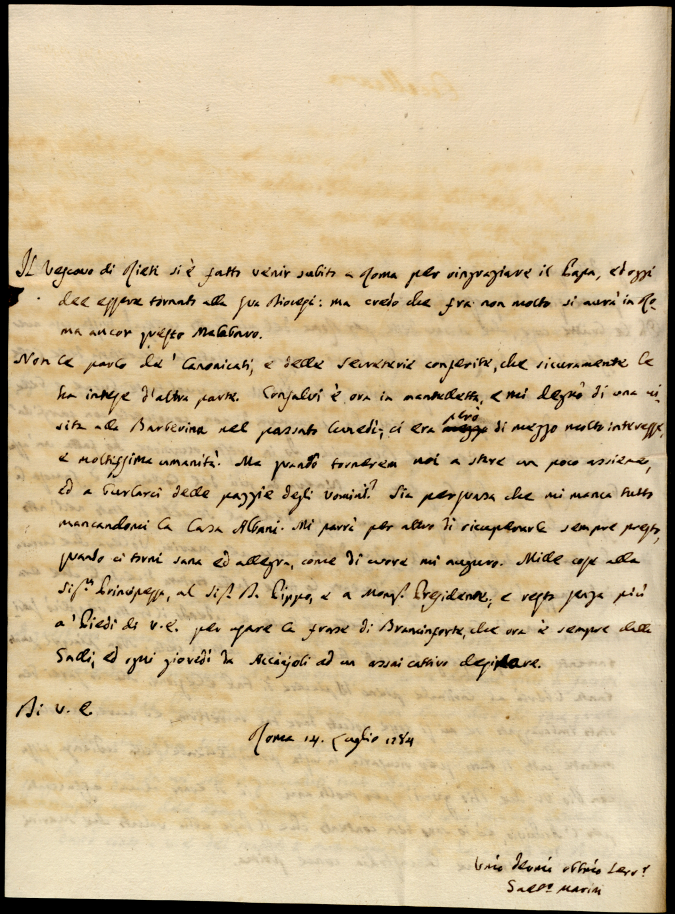 Il Vescovo di Rieti si è fatto venir subito a Roma per ringraziare il Papa, ed oggi
dee essere tornato alla sua Diocesi: ma credo che fra non molto si avrà in Ro-
ma ancor questo Malabranca.
Non Le parlo de' Canonicati, e delle Secreterie conferite, che sicuramente Le
ha intese d'altra parte. Consalvi è ora in mantelletta, e mi degnò di una vi-
sita alla Barberina nel passato Lunedì; ci era però di mezzo molto interesse,
e moltissima umanità. Ma quando torneremo noi a stare un poco assieme,
ed a burlarci delle pazzie degli uomini? Sia persuasa che mi manca tutto
mancandomi la Casa Albani. Mi parrà per altro di ricuperarla sempre presto,
quando ci torni sana ed allegra, come di cuore mi auguro. Mille cose alla
Sig.ra Principessa, al Sig.r D. Pippo, e a Mons.r Presidente, e resto senza più
a' Piedi di V. E. per usare la frase di Branciforte, che ora è sempre dalla
Galli, ed ogni giovedì da Acciajoli ad un assai cattivo desinare.
Di V. E.
Roma 14. Luglio 1784
Umo Devmo Obbmo Serv.r
Gaet.o Marini